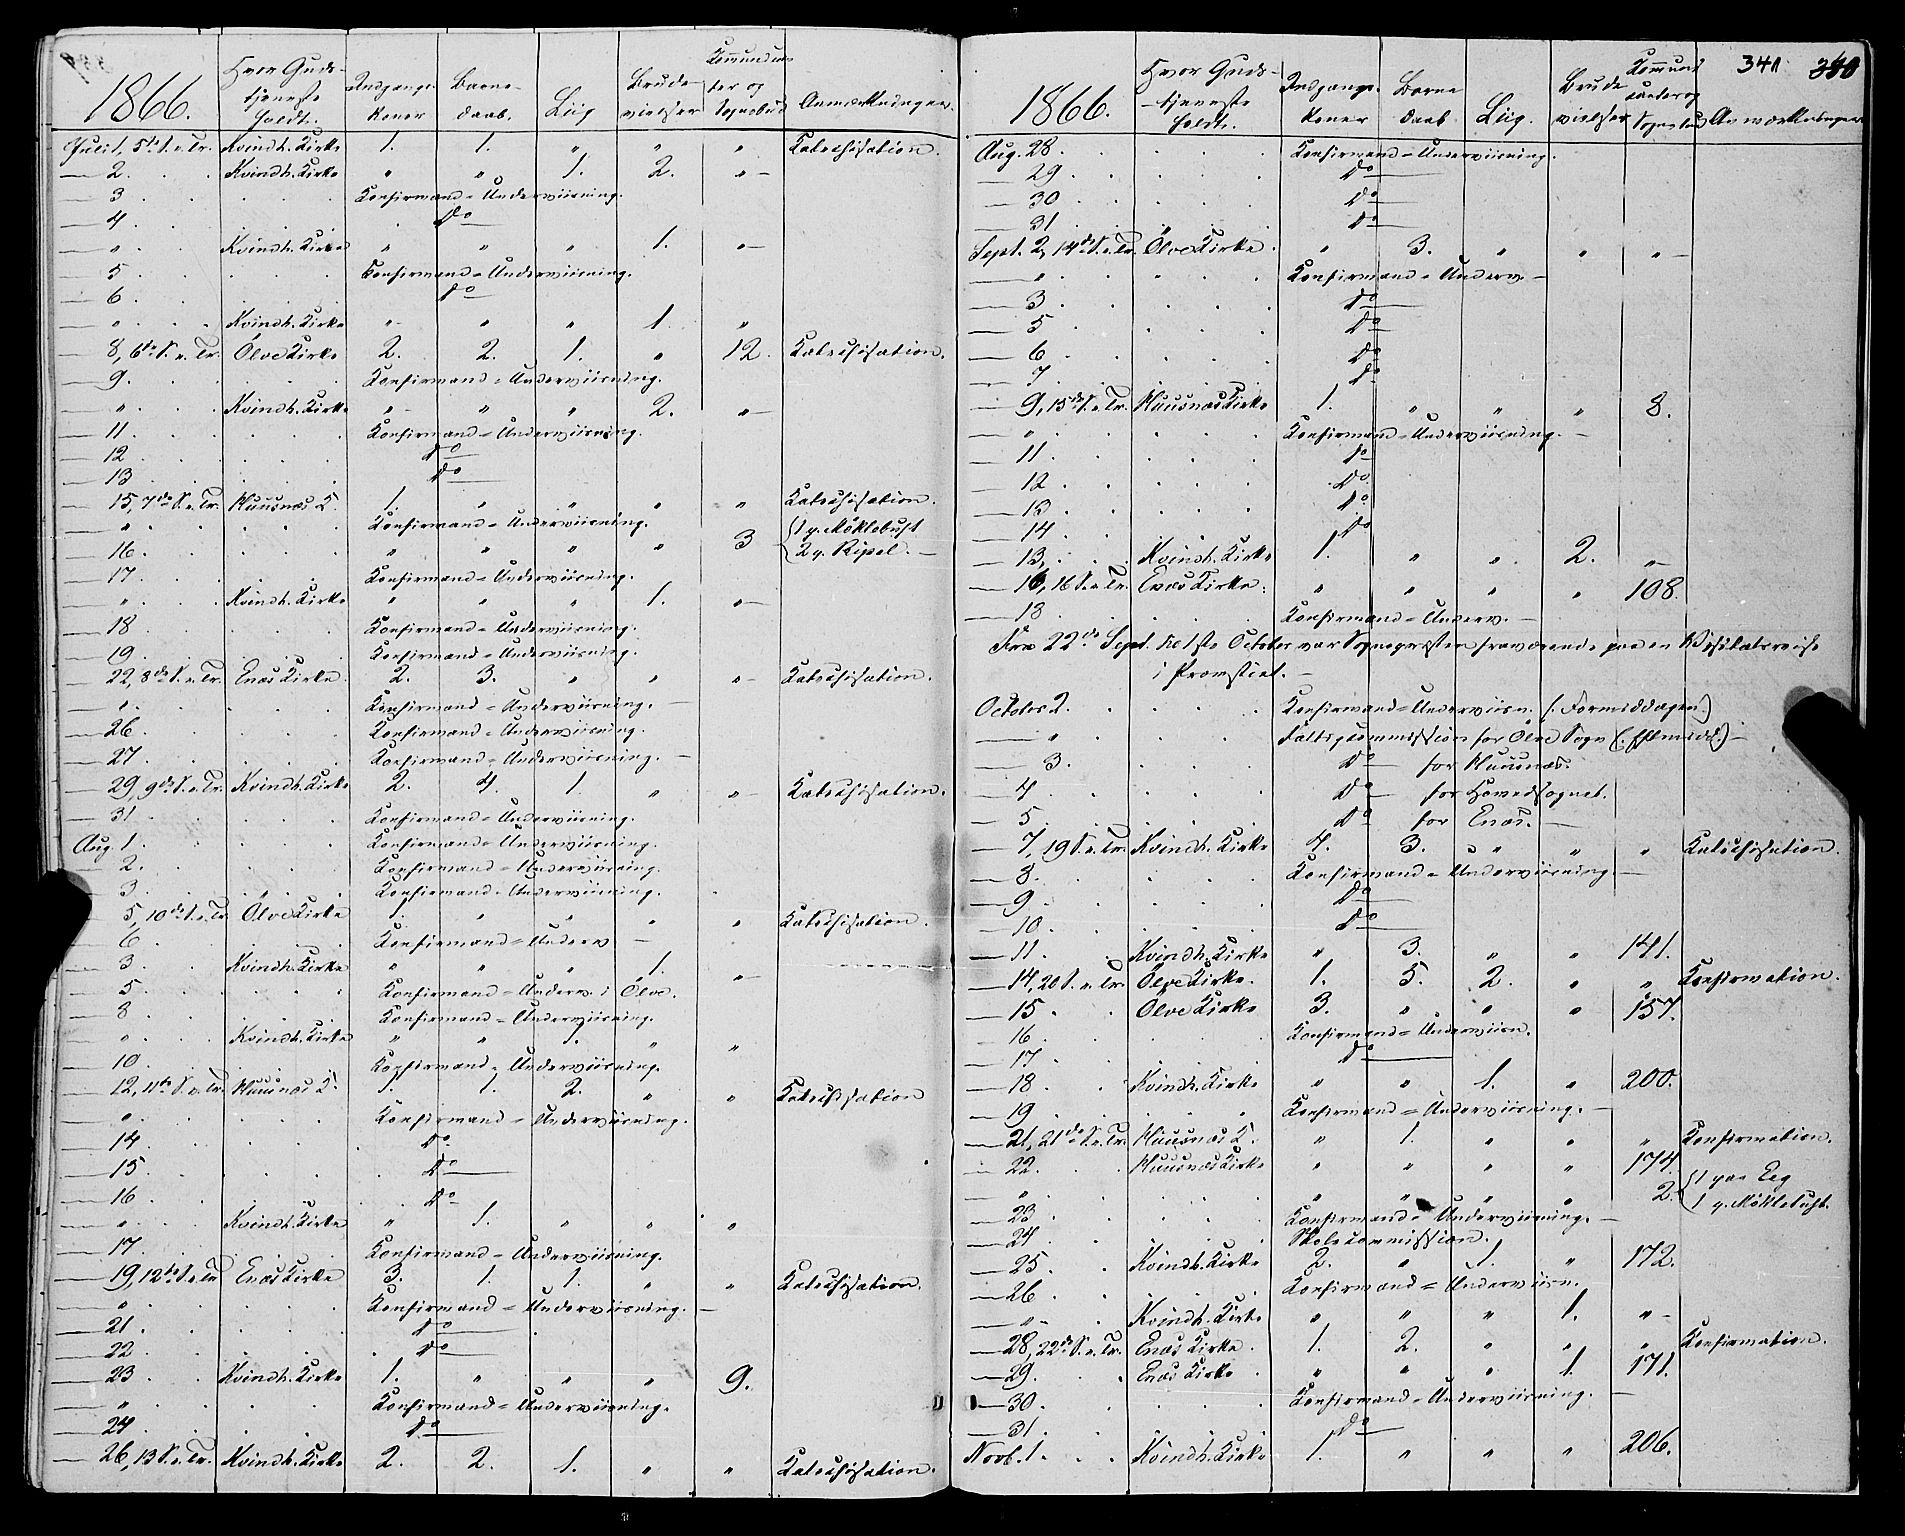 1866. Hvor Guds-tjeneste holdt. Indgangs-koner Barne-daab. Liig Brude-vielser Kommunikanter og Sognebud Anmærkninger.
Juli 1, 5te S. e. Tr. Kvindh. Kirke 1. 1. " " " Katechisation.
— 2. Kvindh. Kirke " " 1. 2. "
— 3 Konfirmand-Underviisning.
— 4 Do
— " Kvindh. Kirke " " " 1. "
— 5 Konfirmand-Underviisning.
— 6 Do
— " Kvindh. Kirke " " " 1. "
— 8, 6te S. e. Tr. Ölve Kirke 2. 2. 1. " 12. Katechisation.
— 9. Konfirmand-Underviisning.
— " Kvindh. Kirke " " " 2. "
— 11 Konfirmand-Underviisning.
— 12 Do
— 13 Do
— 15, 7de S. e. Tr. Huusnæs K. 1. " " " " Katechisation.
— " Konfirmand-Underviisning.
— 16. " " " " 3 {1 p. Möklebust 2 p. Ripel.
— 17. Konfirmand-Underviisning.
— " Kvindh. Kirke " " " 1. "
— 18 Konfirmand-Underviisning.
— 19. Konfirmand-Underviisning.
— 22, 8de S. e. Tr. Enæs Kirke. 2. 3. " " " Katechisation.
— " Konfirmand-Underviisning.
— 26. Konfirmand-Underviisning.
— 27. Konfirmand-Underviisning.
— 29, 9de S. e. Tr. Kvindh. Kirke 2. 4. 1. " " Katechisation.
— 31 Konfirmand-Underviisning.
Aug. 1. Konfirmand-Underviisning.
— 2. Konfirmand-Underviisning.
— 3 Konfirmand-Underviisning.
— 5, 10de S. e. Tr. Ölve Kirke 1. " " " " Katechisation.
— 6 Konfirmand-Underv.
— 3. Kvindh. Kirke " " " 1. "
— 5. Konfirmand-Underv. i Ölve.
— 8 Konfirmand-Underviisning.
— " Kvindh. Kirke " " 1. " "
— 10. Konfirmand-Underviisning.
— 12, 11te S. e. Tr. Huusnæs K. 1. 1. 2. " " Katechisation
— " Konfirmand-Underviisning.
— 14 Do
— 15 Do
— 16 Do
— " Kvindh. Kirke " 1. " " "
— 17. Konfirmand-Underviisning.
— 19, 12te S. e. Tr Enæs Kirke 3. 1. 1. " " Katechisation.
— " Konfirmand-Underviisning.
— 21 Do
— 22 Do
— 23 Kvindh. Kirke 1. " " " 9.
— " Konfirmand-Underviisning.
— 24 Do
— 26, 13 S. e. Tr. Kvindh. Kirke 2. 2. 1. " " Katechisation.
341 340
1866. Hvor Guds-tjeneste holdt. Indgangs-koner Barne daab Liig. Brude vielser Kommunikanter og Sognebud Anmærkninger
Aug. 28 Konfirmand-Underviisning.
— 29 Do
— 30 Do
— 31 Do
Sept. 2, 14de S. e. Tr. Ölve Kirke. " 3. " " "
— " Konfirmand-Underv.
— 3 Do
— 5 Do
— 6 Do
— 7 Do
— 9, 15de S. e. Tr. Huusnæs Kirke 1. " " " 8.
— " Konfirmand-Underviisning.
— 11 Do
— 12 Do
— 13 Do
— 14 Do
— 13, Kvindh. Kirke 1. " " 2. "
— 16, 16 S. e. Tr. Enæs Kirke. " " " " 108.
— 18 Konfirmand-Underv.
Fra 22de Sept. til 1ste October var Sognepresten fraværende paa en Visitatsreise
i Provstiet.
October 2. Konfirmand-Underviisn. (: Formiddagen)
— " Faltigcommission for Ölve Sogn (: Eftmidd.)
— 3. Do for Huusnæs.
— 4 Do for Hovedsognet.
— 5 Do for Enæs.
— 7, 19 S. e. Tr. Kvindh. Kirke 4. 3. " " " Katechisation.
— 8. Konfirmand-Underviisning.
— 9 Do
— 10 Do
— 11. Kvindh. Kirke " 3. " " 141.
— 14, 20 S. e. Tr. Ölve Kirke. 1. 5. 2. " " Konfirmation.
— 15 Ölve Kirke 3. " " " 157.
— 16 Konfirmand-Underviisn.
— 17 Do
— 18 Kvindh. Kirke " " 1. " 200.
— 19 Konfirmand-Underviisning.
— 21, 21de S. e. Tr. Huusnæs K. " 1. " " " Konfirmation.
— 22. Huusnæs Kirke " " " " 174.
— " " " " " 2. {1 paa Eeg 1 p. Möklebust.
— 23 Konfirmand-Underviisning.
— 24 Skolecommission.
— 25 Kvindh. Kirke 2. " 1. " 172.
— 26 Konfirmand-Underviisn.
— " Kvindh. Kirke " " " 1. "
— 28, 22de S. e. Tr. Enæs Kirke. 1. 2. " " " Konfirmation.
— 29. Enæs Kirke " " " 1. 171.
— 30. Konfirmand-Underviisning.
— 31. Do
Novb. 1. Kvindh. Kirke 1. " " " 206.